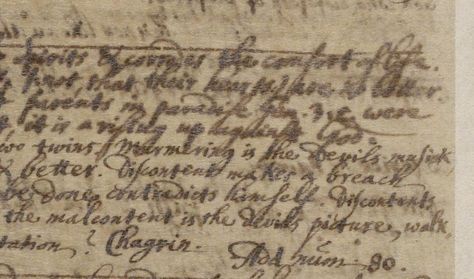 spirits & corrodes the comfort of life.
that their hearts are
parents in paradise Gen. 3. were
it is a rising up against God.
two twins, Murmering is the Devils musick
better. Discontent makes a breach
be done contradicts himself. Discontents
the malcontent is the devils picture, walk.
tation? Chagrin. Add num 80